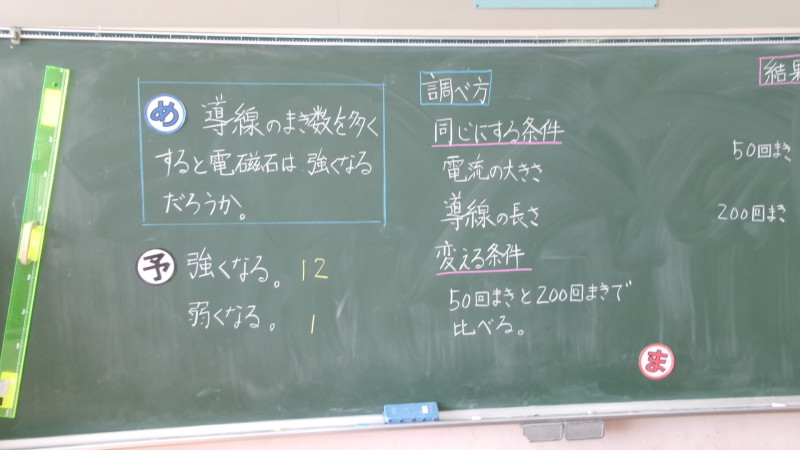 め 導線のまき数を多く
すると電磁石は強くなる
だろうか。
予 強くなる。 12
弱くなる。 1
調べ方
同じにする条件
電流の大きさ
導線の長さ
変える条件
50回まきと200回まきで
比べる。
結果
50回まき
200回まき
ま